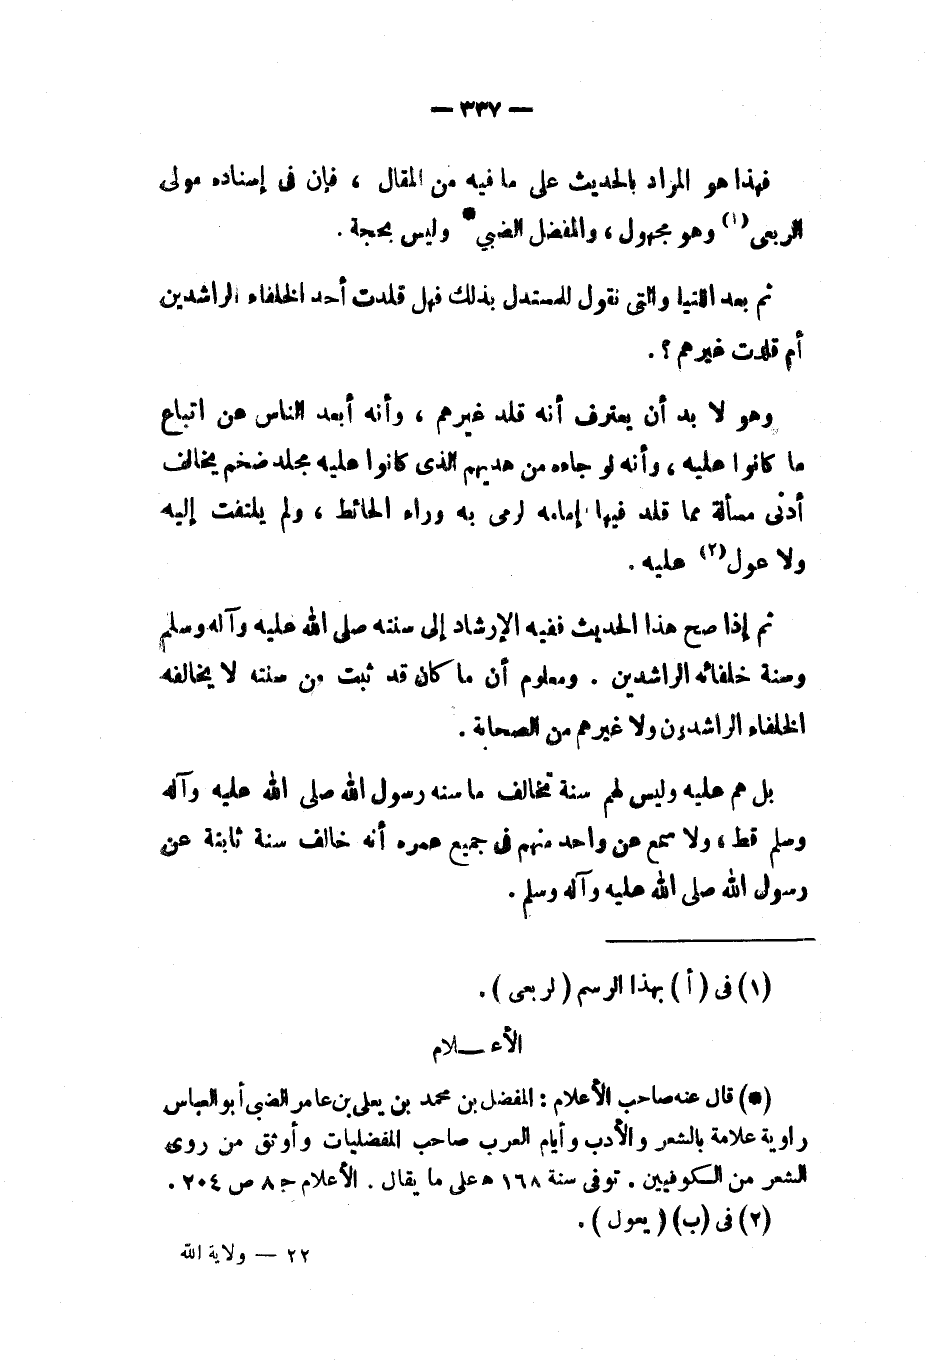 — ٣٣٧ —
فهذا هو المراد بالحديث على ما فيه من المقال ، فإن فى إسناده مولى
الربعى(١) وهو مجهول ، والمفضل الضبي* وليس بحجة .
ثم بعد اللتيا والتى نقول للمستدل بذلك فهل قلدت أحد الخلفاء الراشدين
أم قلدت غيرهم ؟ .
وهو لا بد أن يعترف أنه قلد غيرهم ، وأنه أبعد الناس عن اتباع
ما كانوا عليه ، وأنه لو جاءه من هديهم الذى كانوا عليه مجلد ضخم يخالف
أدنى مسألة مما قلد فيها إمامه لرمى به وراء الحائط ، ولم يلتفت إليه
ولا عول(٢) عليه .
ثم إذا صح هذا الحديث ففيه الإرشاد إلى سنته صلى الله عليه وآله وسلم
وسنة خلفائه الراشدين . ومعلوم أن ما كان قد ثبت من سنته لا يخالفه
الخلفاء الراشدون ولا غيرهم من الصحابة .
بل هم عليه وليس لهم سنة تخالف ما سنه رسول الله صلى الله عليه وآله
وسلم قط ، ولا سمع عن واحد منهم فى جميع عمره أنه خالف سنة ثابتة عن
رسول الله صلى الله عليه وآله وسلم .
(١) فى ( أ ) بهذا الرسم ( لربعى ) .
الأعـــلام
(*) قال عنه صاحب الأعلام : المفضل بن محمد بن يعلى بن عامر الضبى أبو العباس
راوية علامة بالشعر والأدب وأيام العرب صاحب المفضليات وأوثق من روى
الشعر من الكوفيين . توفى سنة ١٦٨ ه على ما يقال . الأعلام ج ٨ ص ٢٠٤ .
(٢) فى (ب) ( يعول ) .
٢٢ — ولاية الله